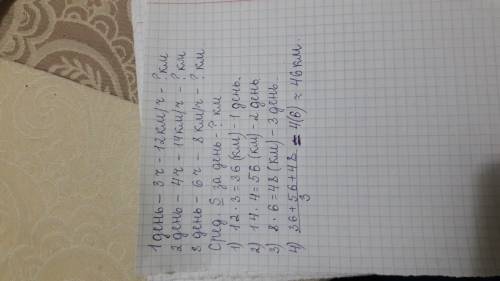 1 день – 3 ч – 12 км/ч – ? км
2 день – 4 ч – 14 км/ч – ? км
3 день – 6 ч – 8 км/ч – ? км
Сред. S за день - ? км
1) 12 · 3 = 36 (км) – 1 день.
2) 14 · 4 = 56 (км) – 2 день
3) 8 · 6 = 48 (км) – 3 день
4) 36 + 56 + 48 = 4(6) ≈ 46 км.
3